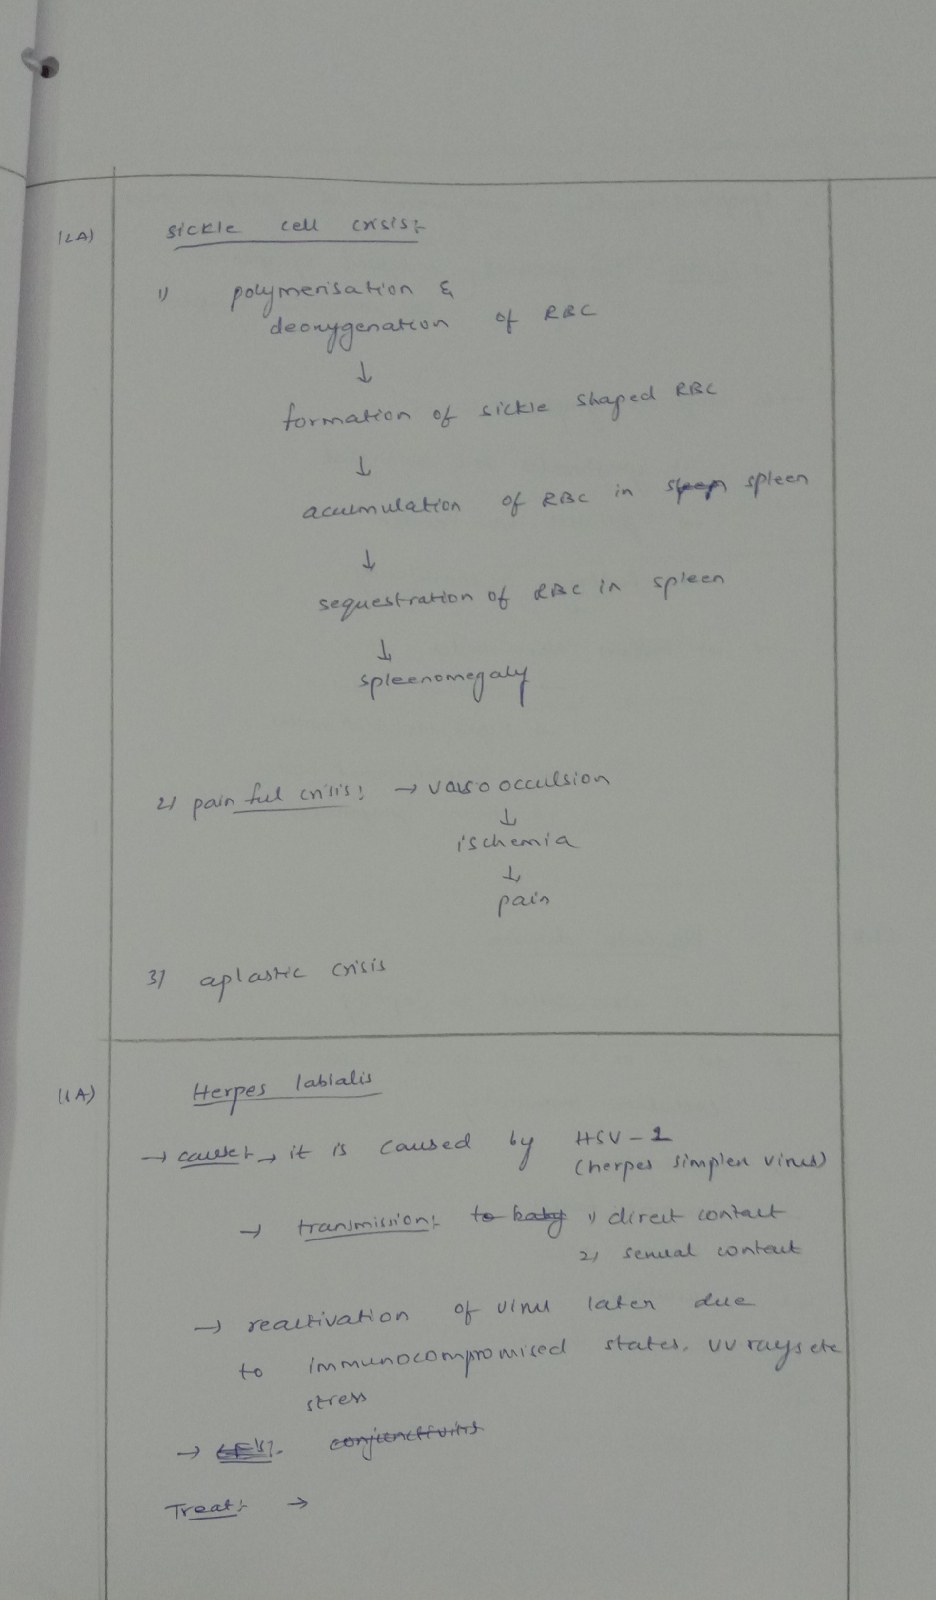 12A)
sickle cell crisis:-
1) polymerisation &
deoxygenation of RBC
↓
formation of sickle shaped RBC
↓
acumulation of RBC in spleen
↓
sequestration of RBC in spleen
↓
spleenomegaly
2) painful crisis: → vaso occulsion
↓
ischemia
↓
pain
3) aplastic crisis
11A)
Herpes labialis
→ cause:- → it is caused by HSV-1
(herpes simplex virus)
→ transmission:- to baby 1) direct contact
2) sexual contact
→ reactivation of virus later due
to immunocompromised states, UV rays etc
stress
→ conjunctivitis
Treat:- →